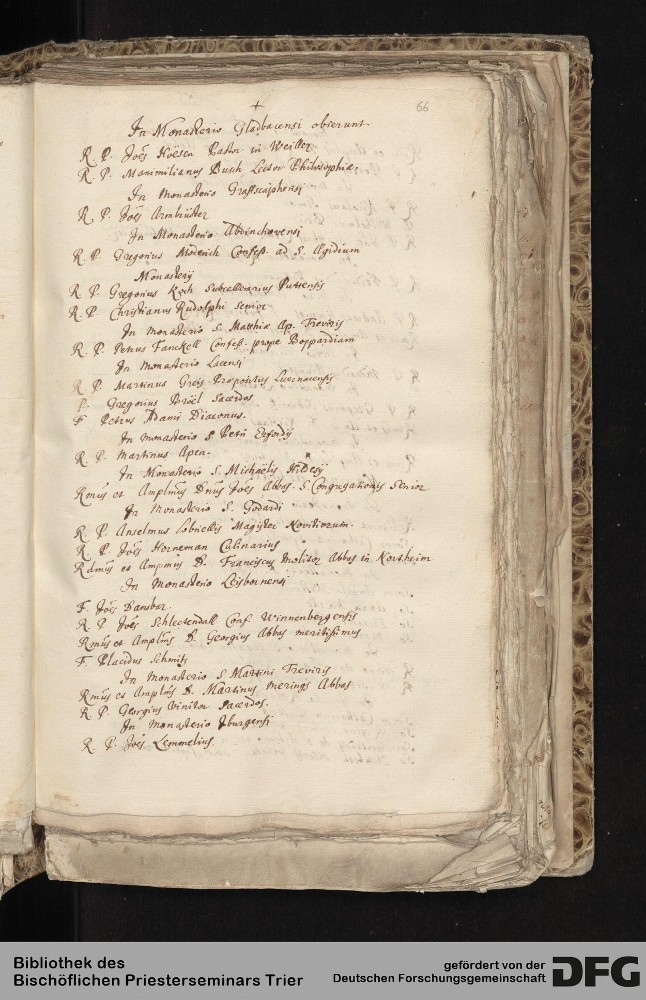 +
66
In Monasterio Gladbacensi obierunt.
R. P. Joes Hoesen Pastor in Weiller
R. P. Maximilianus Busch Lector Philosophiae
In Monasterio Graffscaphensi
R. P. Joes Armbruster
In Monasterio Abdinchovensi
R. P. Gregorius Moderich Confess. ad S. Agidium
Monasterij
R. P. Gregorius Koch Subcellerarius
R. P. Christianus Rudolphi Senior
In Monasterio S. Matthiae Ap. Treviris
R. P. Petrus Fanckell Confess. prope Boppardiam
In Monasterio Lacensi
R P. Martinus Greis Praepositus
P. Gregorius Bröel Sacerdos
F. Petrus Adami Diaconus.
In Monasterio S Petri Erfordij
R. P. Martinus Apen.
In Monasterio S. Michaëlis Hildesij
Rmus et Amplmus Dnus Joes Abbas. S. Congregationis Senior
In Monasterio S. Godardi
R. P. Anselmus Magister Novitiorum.
R. P. Joes Horneman Culinarius
Rdmus et Ampmus D. Franciscus Molitor Abbas in Northeim
In Monasterio Leisbornensi
F. Joes
R P. Joes Schleetendall Conf. Winnenbergensis
Rmus et Amplmus D. Georgius Abbas meritissimus
F. Placidus Schmitz
In Monasterio S. Martini Treviris
Rmus et Amplmus D. Martinus Merings Abbas
R. P. Georgius Vinitor Sacerdos.
In Monasterio Iburgensi
R. P. Joes Lemmelius.
Bibliothek des
Bischöflichen Priesterseminars Trier
gefördert von der
Deutschen Forschungsgemeinschaft
DFG